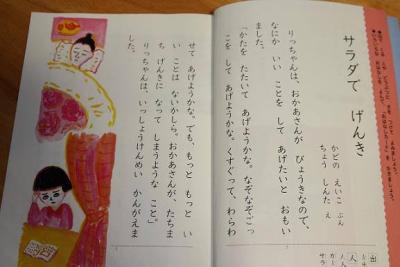 サラダで げんき
かどの えいこ ぶん
ちょう しんた え
りっちゃんは、おかあさんが びょうきなので、
なにか いい ことを して あげたいと おもい
ました。
「かたを たたいて あげようかな。なぞなぞごっ
こを して あげようかな。くすぐって、わらわ
せて あげようかな。でも、もっと もっと い
い ことは ないかしら。おかあさんが、たちま
ち げんきに なって しまうような こと。」
りっちゃんは、いっしょうけんめい かんがえま